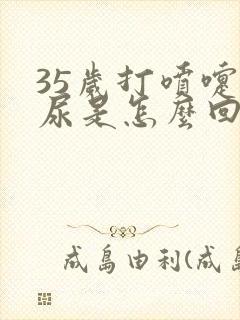 35歲打噴嚏
尿是怎麼回
成島由利(成島